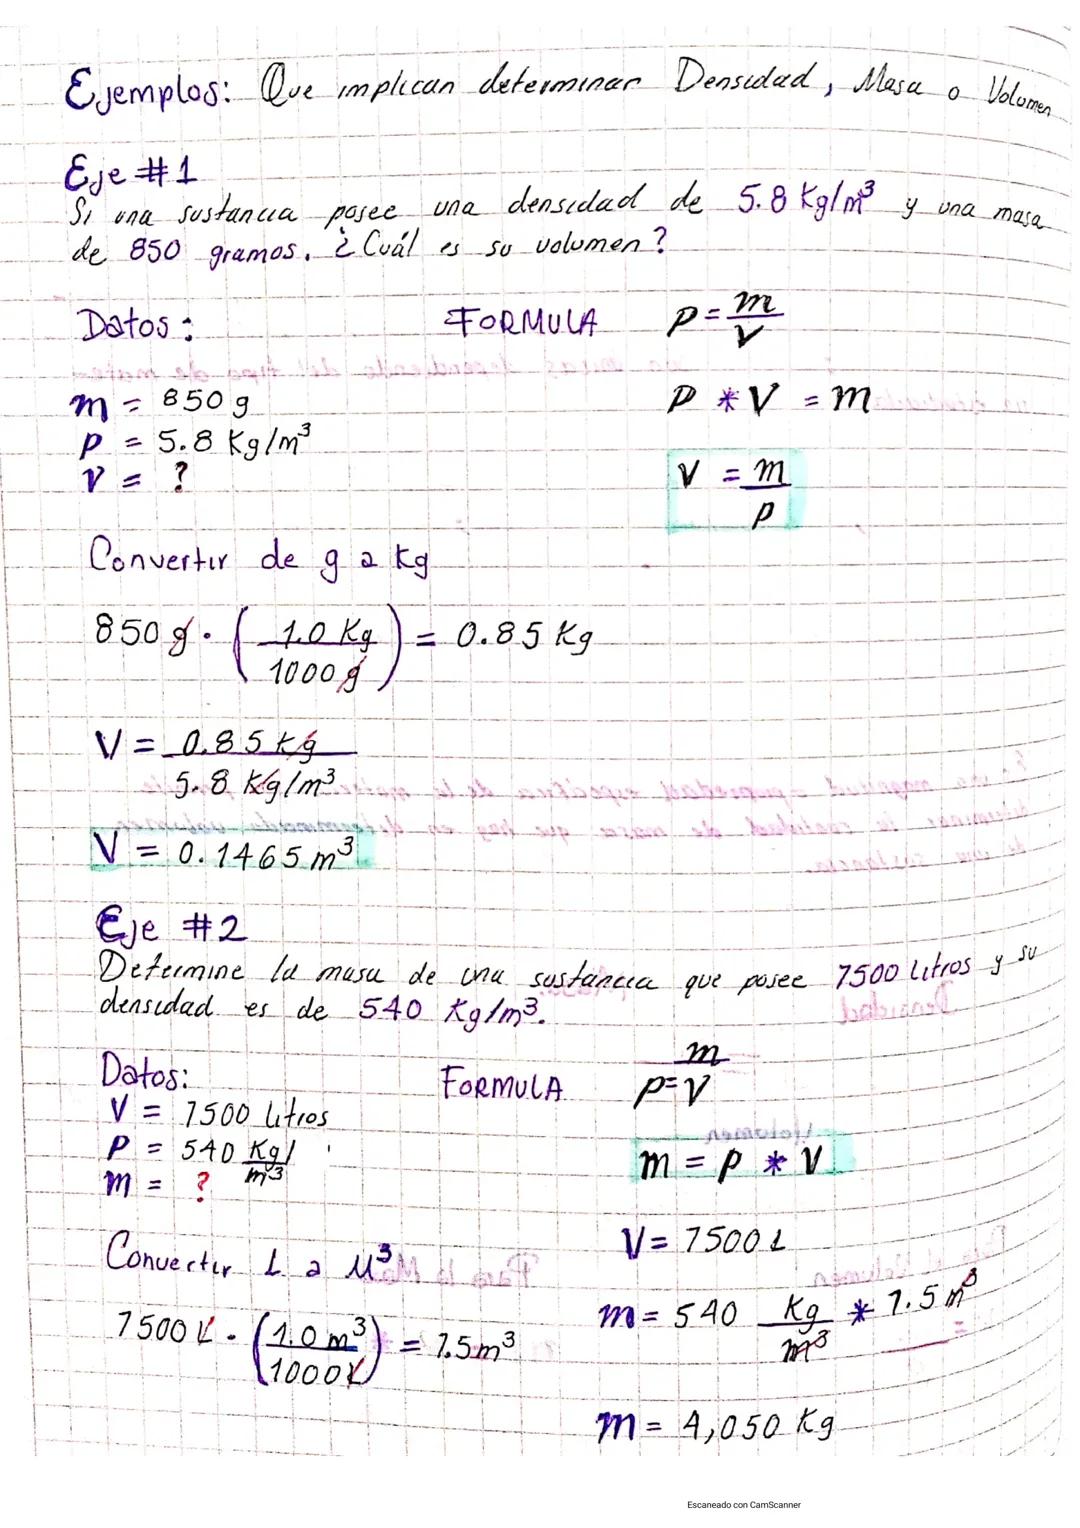 Ejemplos: Que implican determinar Densidad, Masa o Volumen
Eje #1
Si una sustancia posee una densidad de 5.8 Kg/m³ y una masa
de 850 gramos. ¿Cuál es su volumen?
Datos: FORMULA P = m/V
m = 850 g
P * V = m
P = 5.8 Kg/m³
V = ?
V = m/P
Convertir de g a Kg
850 g · (1.0 Kg / 1000 g) = 0.85 Kg
V = 0.85 Kg / 5.8 Kg/m³
V = 0.1465 m³
Eje #2
Determine la masa de una sustancia que posee 7500 Litros y su
densidad es de 540 Kg/m³.
Datos: FORMULA P = m/V
V = 7500 Litros
P = 540 Kg/m³
m = P * V
m = ?
V = 7500 L
Convertir L a M³
m = 540 Kg/m³ * 7.5 m³
7500 L · (1.0 m³ / 1000 L) = 7.5 m³
m = 4,050 Kg
Escaneado con CamScanner